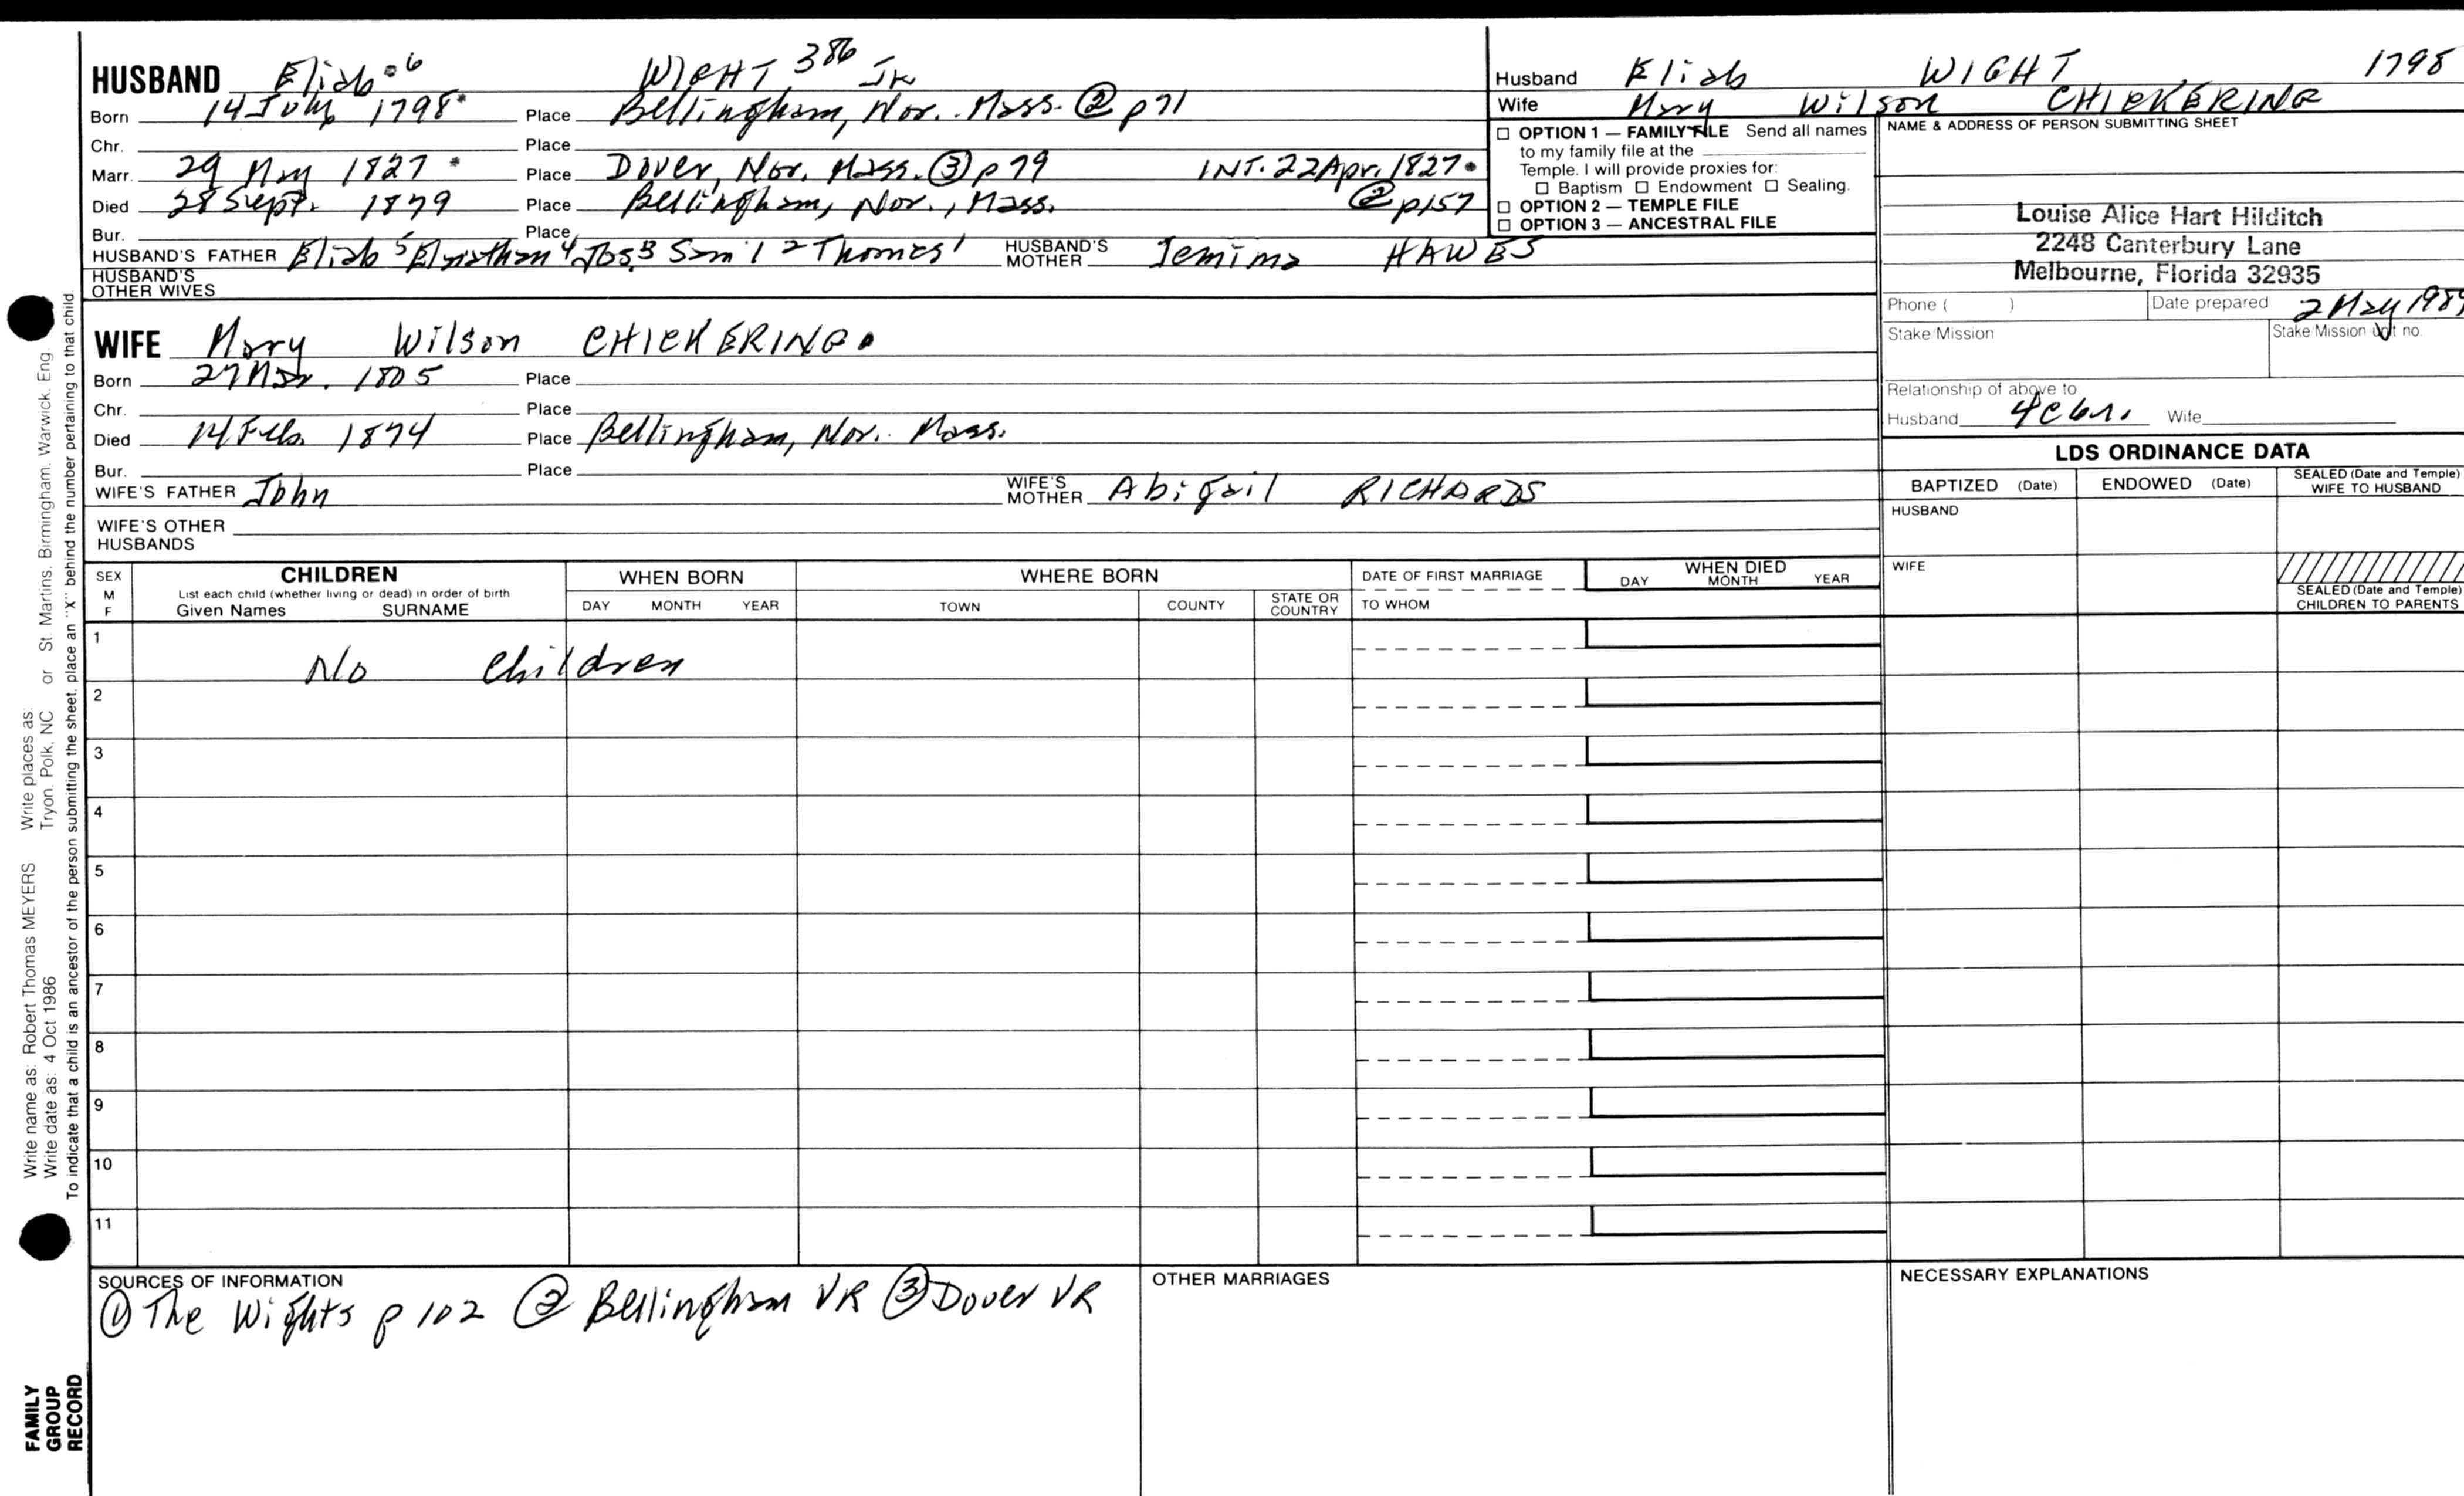 HUSBAND Eliab 6 WIGHT 386 Jr
Born 14 July 1798 Place Bellingham, Nor. Mass. ② p 71
Chr. Place
Marr. 29 May 1827 Place Dover, Nor. Mass. ③ p 79 INT. 22 Apr. 1827
Died 28 Sept. 1879 Place Bellingham, Nor., Mass. ② p157
Bur. Place
HUSBAND'S FATHER Eliab 5 Elnathan 4 Jos 3 Sam'l 2 Thomas 1 HUSBAND'S MOTHER Jemima HAWES
HUSBAND'S OTHER WIVES
WIFE Mary Wilson CHICKERING
Born 27 1805 Place
Chr. Place
Died 14 Feb. 1874 Place Bellingham, Nor. Mass.
Bur. Place
WIFE'S FATHER John WIFE'S MOTHER Abigail RICHARDS
WIFE'S OTHER HUSBANDS
Husband Eliab WIGHT 1798
Wife Mary Wilson CHICKERING
☐ OPTION 1 — FAMILY FILE Send all names
to my family file at the
Temple. I will provide proxies for:
☐ Baptism ☐ Endowment ☐ Sealing.
☐ OPTION 2 — TEMPLE FILE
☐ OPTION 3 — ANCESTRAL FILE
NAME & ADDRESS OF PERSON SUBMITTING SHEET
Louise Alice Hart Hilditch
2248 Canterbury Lane
Melbourne, Florida 32935
Phone ( ) Date prepared 2 May 1989
Stake/Mission Stake/Mission Unit no.
Relationship of above to
Husband 4c6r. Wife
LDS ORDINANCE DATA
BAPTIZED (Date) ENDOWED (Date) SEALED (Date and Temple) WIFE TO HUSBAND
HUSBAND
WIFE
SEALED (Date and Temple) CHILDREN TO PARENTS
SEX M F
CHILDREN
List each child (whether living or dead) in order of birth
Given Names SURNAME
WHEN BORN
DAY MONTH YEAR
WHERE BORN
TOWN COUNTY STATE OR COUNTRY
DATE OF FIRST MARRIAGE
TO WHOM
WHEN DIED
DAY MONTH YEAR
1 No Children
2
3
4
5
6
7
8
9
10
11
SOURCES OF INFORMATION
① The Wights p 102 ② Bellingham VR ③ Dover VR
OTHER MARRIAGES
NECESSARY EXPLANATIONS
Write name as: Robert Thomas MEYERS Write places as:
Write date as: 4 Oct 1986 Tryon, Polk, NC or St. Martins, Birmingham, Warwick, Eng.
To indicate that a child is an ancestor of the person submitting the sheet, place an "X" behind the number pertaining to that child
FAMILY
GROUP
RECORD